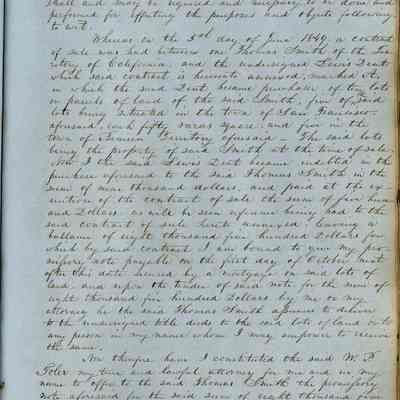 shall and may be required and necessary to be done and
performed for effecting the purposes and objects following
to wit.
Whereas on the 3rd day of June 1849, a contract
of sale was had between one Thomas Smith of the Ter
ritory of California, and the undersigned Lewis Dent
which said contract is hereunto annexed, marked A,
in which the said Dent became purchaser of ten lots
or parcels of land of the said Smith, five of said
lots being situated in the town of San Francisco
aforesaid, each fifty varas square and five in the
town of Benicia Territory aforesaid. The said lots
being the property of said Smith at the time of sale.
Now I the said Lewis Dent became indebted in the
purchase aforesaid to the said Thomas Smith in the
sum of nine thousand dollars, and paid at the ex-
ecution of the contract of sale the sum of five hun
dred Dollars as will be seen reference being had to the
said contract of sale hereto annexed, leaving a
balance of eight thousand five hundred Dollars for
which by said contract I am bound to give my pro-
missory note payable on the first day of October next
after this date secured by a mortgage on said lots of
land, and upon the tender of said note for the sum of
eight thousand five hundred Dollars by me or my
attorney he the said Thomas Smith agrees to deliver
to the undersigned title deeds to the said lots of land or to
any person in my name whom I may empower to receive
the same.
Now therefore have I constituted the said W. F.
my true and lawful attorney for me and in my
name to offer to the said Thomas Smith the promissory
note aforesaid for the said sum of eight thousand five